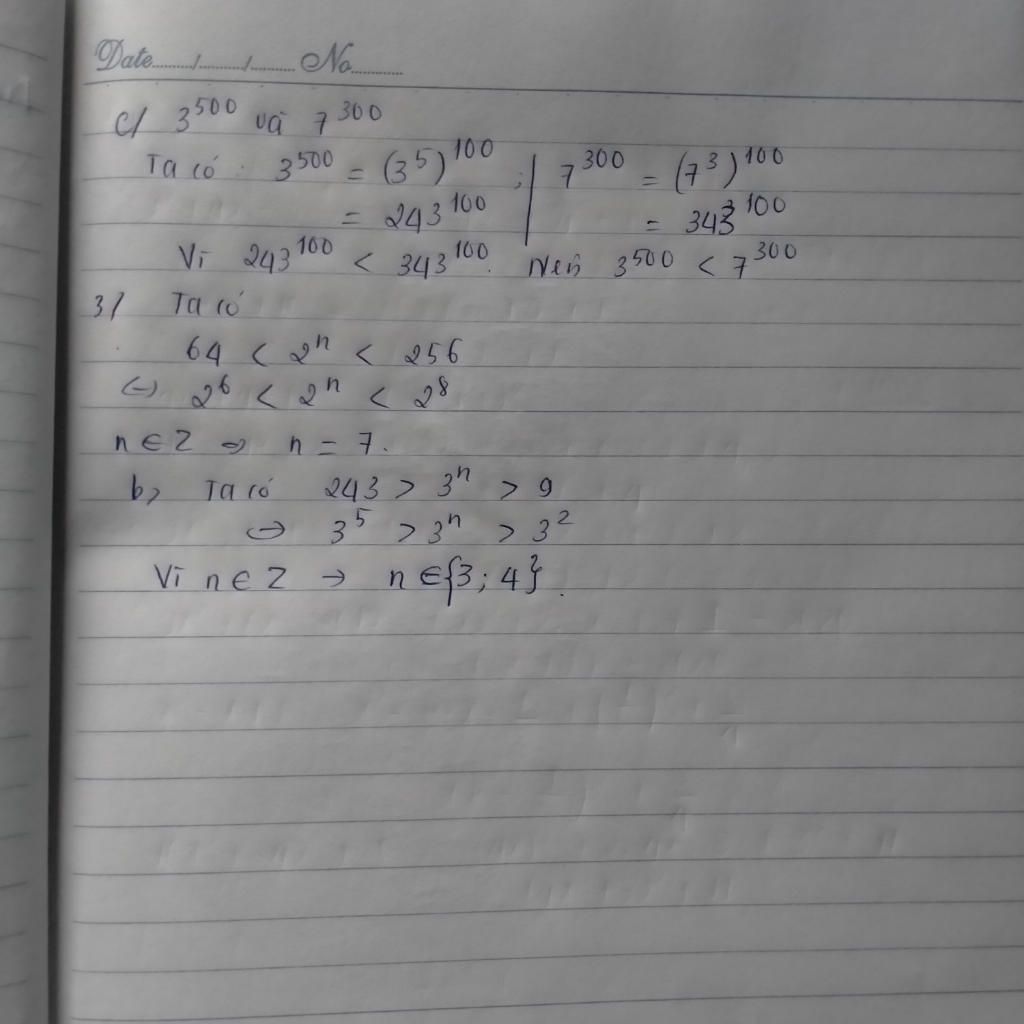 Date......../........../......... No............
c/ 3^500 và 7^300
Ta có : 3^500 = (3^5)^100 ; | 7^300 = (7^3)^100
= 243^100 | = 343^100
Vì 243^100 < 343^100. Nên 3^500 < 7^300
3/ Ta có
64 < 2^n < 256
(-) 2^6 < 2^n < 2^8
n ∈ Z => n = 7.
b, Ta có 243 > 3^n > 9
=> 3^5 > 3^n > 3^2
Vì n ∈ Z → n ∈ {3; 4}.